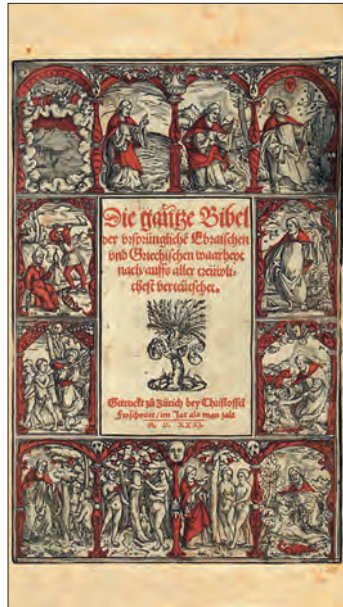 Die gantze Bibel
der vrsprünglichē Ebraischen
vnd Griechischen waarheyt
nach / auffs aller treüwli-
chest verteütschet.
Getruckt zů Zürich bey Christoffel
Froschouer / im Jar als man zalt
M. D. XXXI.